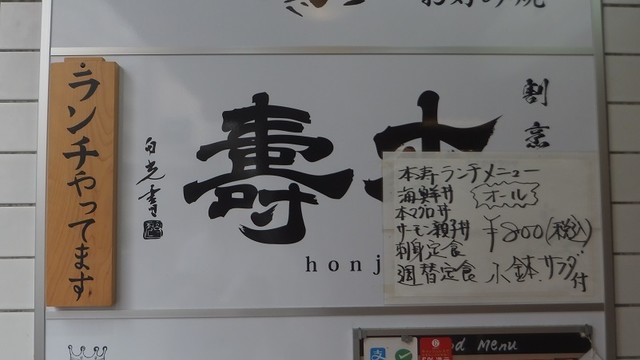 お好み焼
ランチやってます
割烹
本
壽
honj
本寿ランチメニュー
海鮮丼
本マグロ丼
サーモン親子丼
刺身定食
週替定食
オール
¥800(税込)
小鉢.サラダ付
od Menu